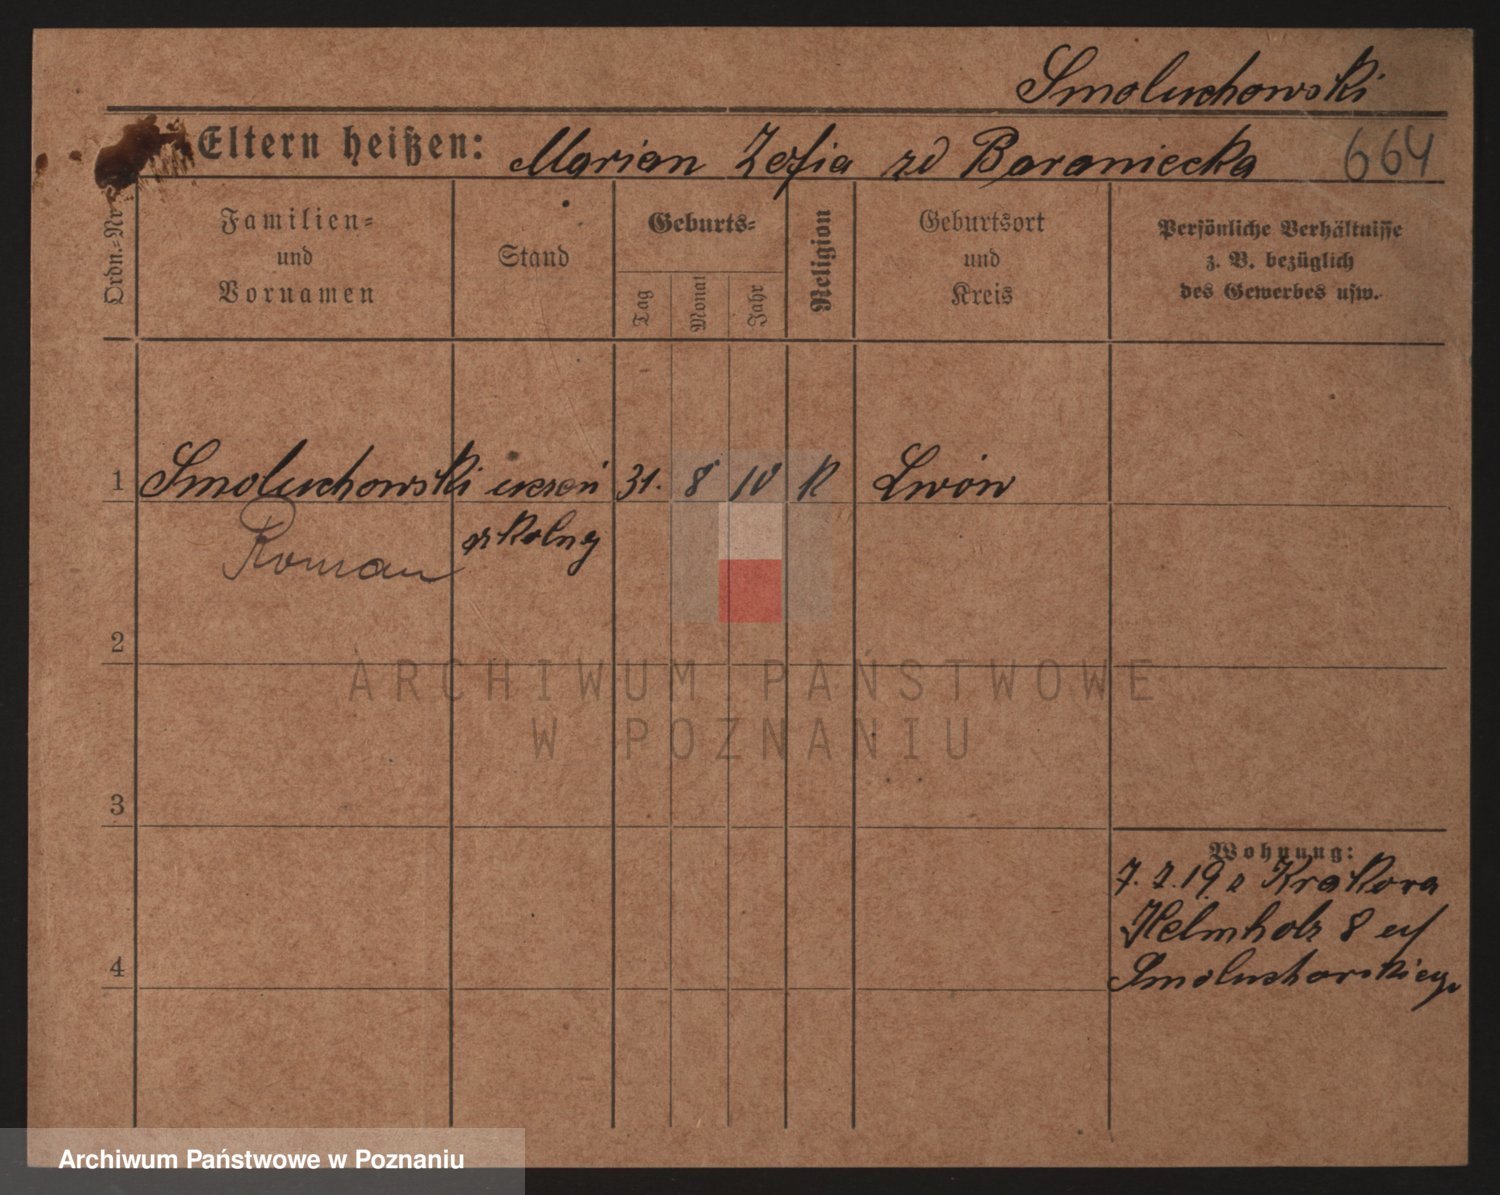 Smoluchowski
Eltern heißen: Marian Zofia zd Baraniecka 664
Ordn.=Nr.
Familien=
und
Vornamen
Stand
Geburts=
Tag
Monat
Jahr
Religion
Geburtsort
und
Kreis
Persönliche Verhältnisse
z. B. bezüglich
des Gewerbes usw.
1 Smoluchowski uczeń 31. 8 10 K Lwów
Roman szkolny
2
3
4
Wohnung:
7. 7. 19 z Krakowa
Helmholz 8 u/
Smoluchowskiego
ARCHIWUM PAŃSTWOWE
W POZNANIU
Archiwum Państwowe w Poznaniu